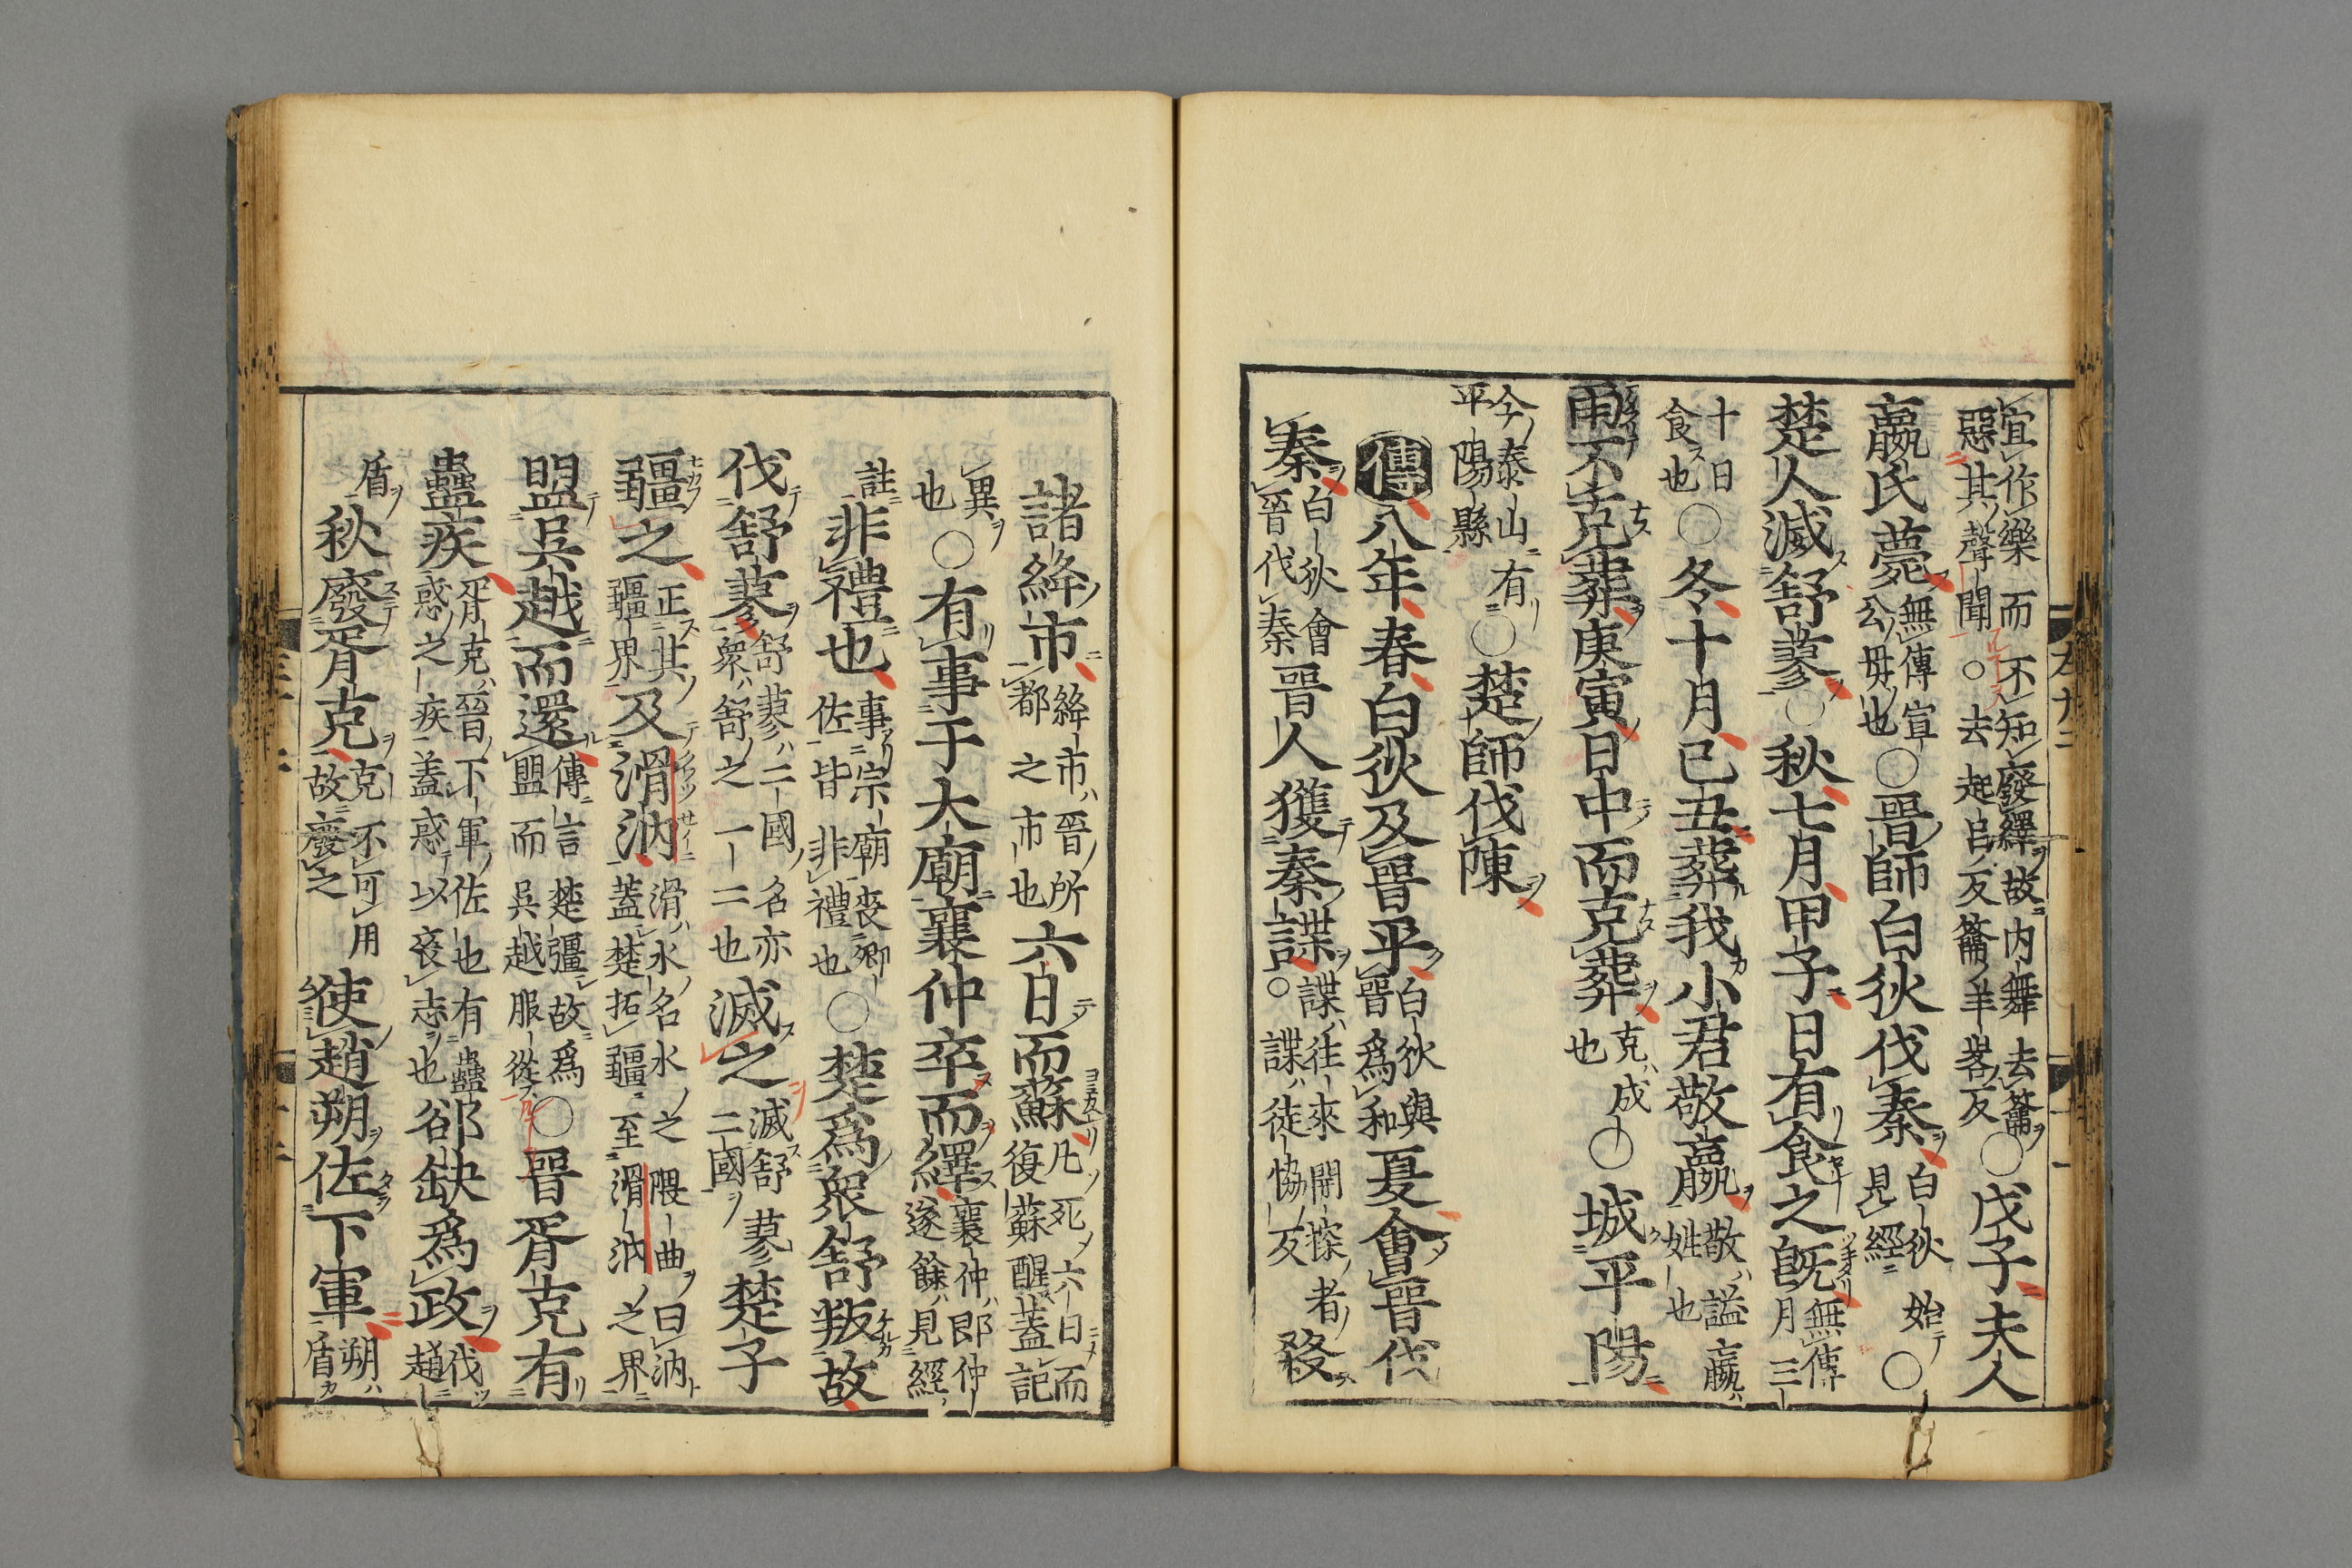 宜作樂而不知廢繹故內舞去籥
惡其聲聞○去起呂反籥羊畧反○戊子夫人
嬴氏薨無傳宣公毋也○晉師白狄伐秦白狄始見經○
楚人滅舒蓼○秋七月甲子日有食之旣無傳月三
十日食也○冬十月己丑葬我小君敬嬴敬謚嬴姓也
雨不克葬庚寅日中而克葬克成也○城平陽
今泰山有平陽縣○楚師伐陳
傳八年春白狄及晉平白狄與晉為和夏會晉伐
秦白狄會晉伐秦晉人獲秦諜諜往來間㨷者○諜徒協反殺
諸絳市絳市晉所都之市也六日而蘇凡死六日而復蘇醒蓋記
異也○有事于太廟襄仲卒而繹襄仲卽仲遂餘見經
註非禮也事宗廟喪卿佐皆非禮也○楚爲衆舒叛故
伐舒蓼舒蓼二國名亦衆舒之一二也滅之滅舒蓼二國楚子
疆之正其疆界及滑汭滑水名水之隈曲曰汭蓋楚拓疆至滑汭之界
盟吳越而還傳言楚彊故爲盟而吳越服從○晉胥克有
蠱疾胥克晉下軍佐也有蠱惑之疾蓋惑以喪志也郤缺爲政伐趙
盾秋廢胥克克不可用故廢之使趙朔佐下軍朔盾